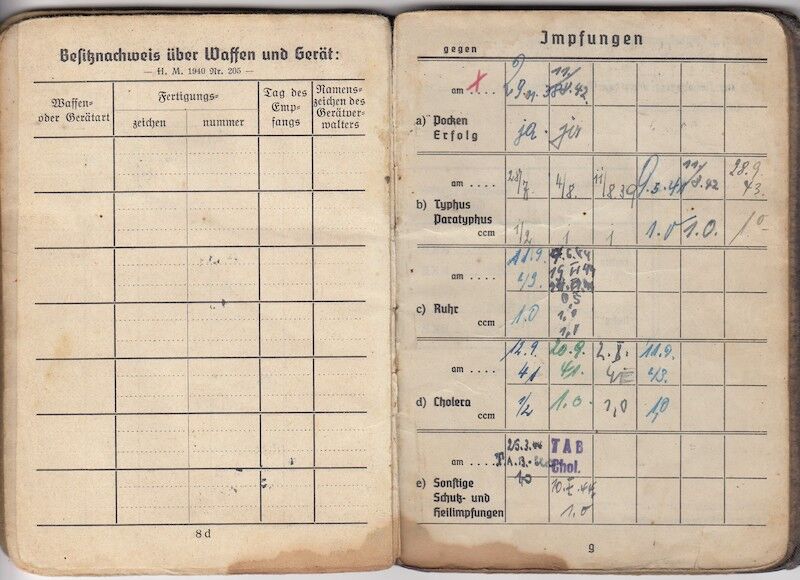 Besitznachweis über Waffen und Gerät:
— H. M. 1940 Nr. 205 —
Waffen-
oder Gerätart
Fertigungs-
zeichen
nummer
Tag des
Emp-
fangs
Namens-
zeichen des
Gerätver-
walters
8 d
Impfungen
gegen
am ....
a) Pocken
Erfolg
ja. ja
am .... 28/7. 4/8. 11/8 39 9.5.41 11/8.42 28.9. 43.
b) Typhus
Paratyphus
ccm 1/2 1 1 1.0 1.0. 1.0
am .... 11.9. 43.
c) Ruhr
ccm 1.0
0,5
1,0
1,0
am .... 12.9. 41 20.9. 41. 11.9. 43.
d) Cholera
ccm 1/2 1.0. 1,0 1,0
am .... 25.3.44 TAB
Chol.
e) Sonstige
Schutz- und
Heilimpfungen
1.0
9